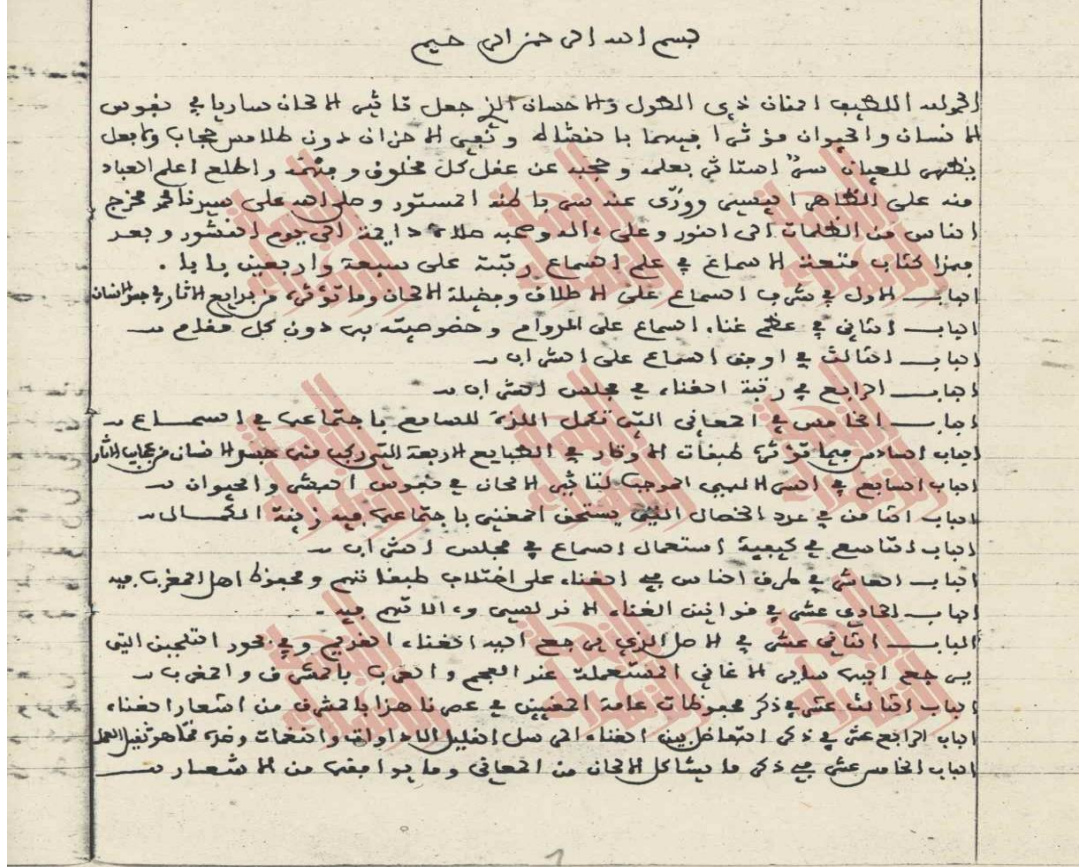 بسم الله الرحمن الرحيم
الحمد لله اللطيف المنان ذي الطول والاحسان الذي جعل تاثير الالحان ساريا في نفوس
الانسان والحيوان مؤثرا فيهما با نفعاله و نفي الاحزان دون طلامس حجاب
يظهر للعيان سر استاثر بعلمه و حجبه عن عقل كل مخلوق و اطلع اعلم العباد
منه على الظاهر اليسير وورى عنه سر باطنه المستور و صلى الله على سيدنا محمد مخرج
الناس من الظلمات الى النور وعلى ءاله وصحبه صلاة دايمة الى يوم النشور وبعد
فهذا كتاب متعة الاسماع في علم السماع رتبته على سبعة واربعين بابا .
الباب الاول في شرف السماع على الاطلاق وفضيلة الالحان وما تؤثره من بدايع الاثار في جنس الانسان
الباب الثاني في عظم غناء السماع على المدوام وخصوصيته به دون كل مقام
الباب الثالث في اوجه السماع على الشراب
الباب الرابع في رتبة الغناء في مجلس الشراب
الباب الخامس في المعاني التي تكمل اللذة للسامع باجتماعها في السمـــاع
الباب السادس فيما تؤثره طبقات الاوتار في الطبايع الاربعة التي ركب منها جنس الانسان من عجايب الاثار
الباب السابع في السر الالهي الموجب لتاثير الالحان في نفوس البشر والحيوان
الباب الثامن في عدد الخصال التي يستحق المغني باجتماعها فيه زينة الكمـــال
الباب التاسع في كيفية استعمال السماع في مجلس الشراب
الباب العاشر في طرق الناس في الغناء على اختلاف طبقاتهم ومحفوظ اهل المغرب فيه
الباب الحادي عشر في قوانين الغناء الاندلسي وءالاتهم فيه .
الباب الثاني عشر في الاصل الذي يرجع اليه الغناء القديم و في بحور التلحين التي
يرجع اليها ساير الاغاني المستعملة عند العجم و العرب بالمشرق و المغرب
الباب الثالث عشر في ذكر محفوظات عامة المغنيين في عصرنا هذا بالمشرق من اشعار الغناء
الباب الرابع عشر في ذكر التفاضل بين الغناء المرسل القليل الاداوات والنغمات وضده مما هو ثقيل العمل
الباب الخامس عشر في ذكر ما يشاكل الالحان من المعاني وما يوافقها من الاشعار